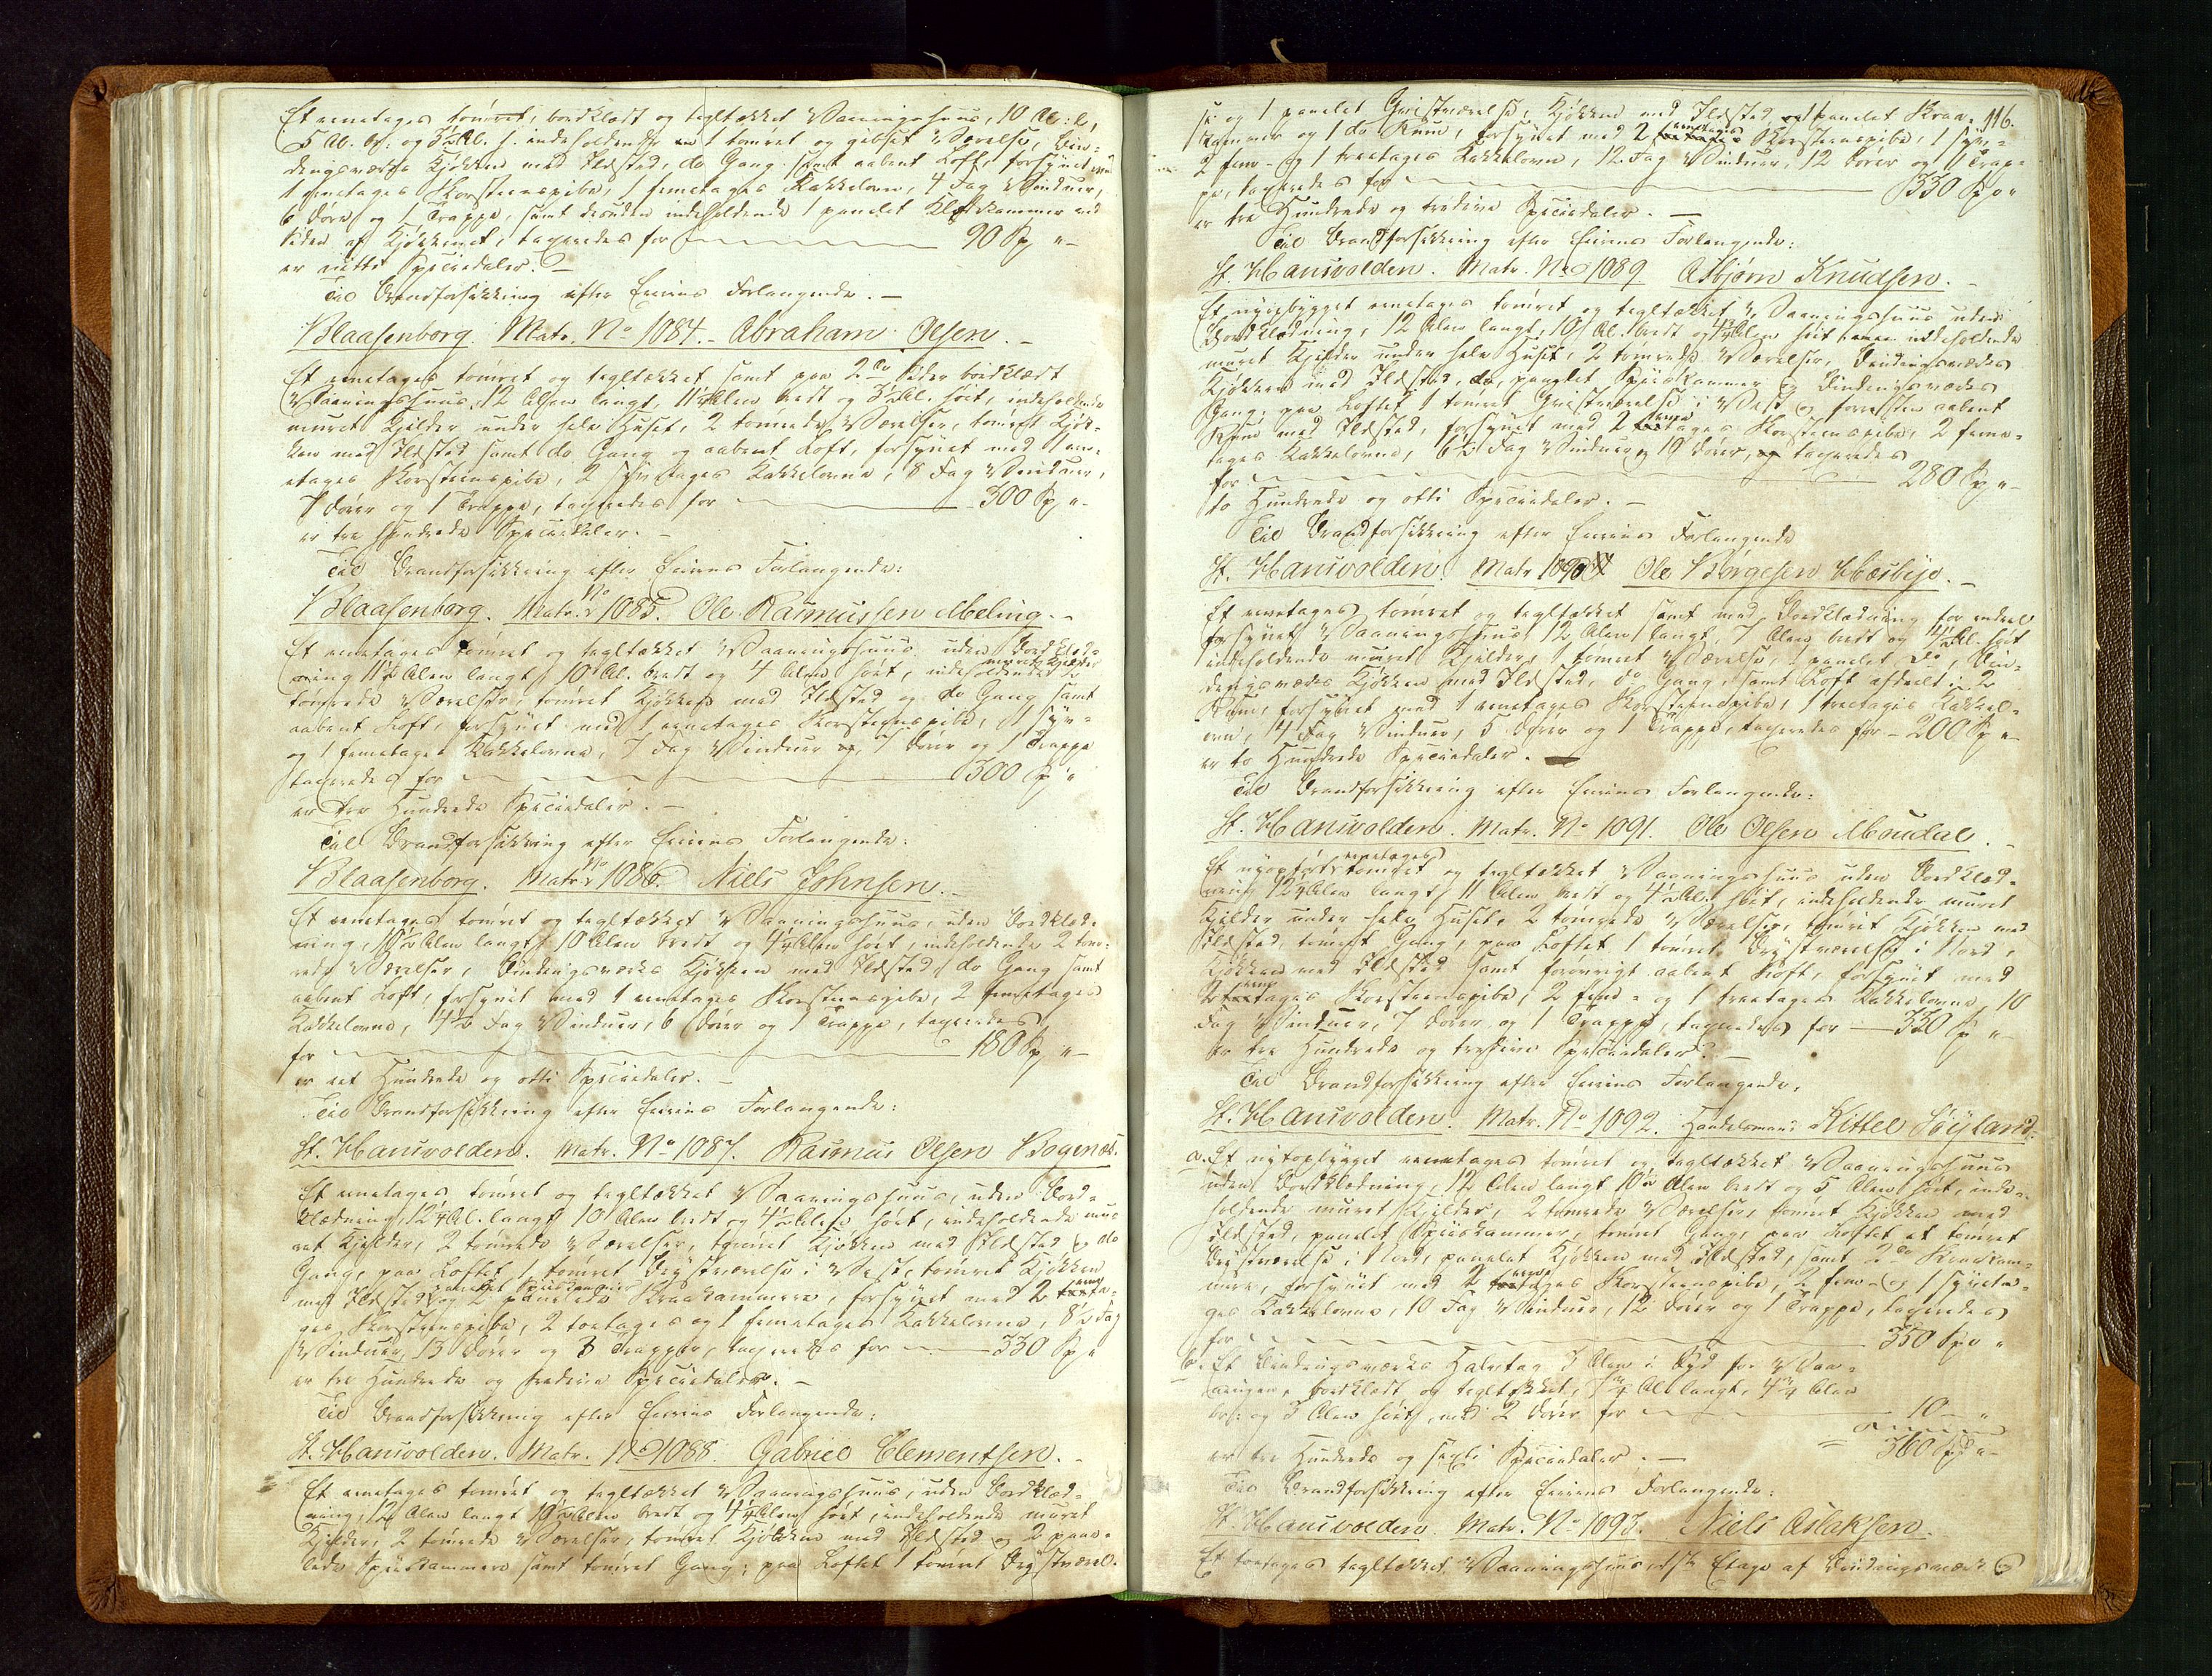 Et eenetages tømret, bordklædt og tegltækket Vaaningshuus, 10 Al: l,
5 Al. br: og 3½ Al. h. indeholdende 1 tømret og gibset Værelse, Bin-
dingsværks Kjøkken med Ildsted, do Gang samt aabent Loft, forsynet med
1 eenetages Skorsteenspibe, 1 femetages Kakkelovn, 4 Fag Vinduer,
6 Døre og 1 Trappe, samt desuden indeholdende 1 panelet Klædekammer ved
Siden af Kjøkkenet, taxeredes for 90 Sp "-
er nitti Speciedaler. -
Til Brandforsikkring efter Eierens Forlangende. -
Blaasenborg. Matr. No 1084. - Abraham Olsen. -
Et eenetages tømret og tegltækket samt paa 2de Sider bordklædt
Vaaningshuus, 12 Alen langt, 11½ Alen bredt og 3½ Al. høit, indeholdende
muret Kjelder under hele Huset, 2 tømrede Værelser, tømret Kjøk-
ken med Ildsted samt do Gang og aabent Loft, forsynet med 1 een-
etages Skorsteenspibe, 2 syvetages Kakkelovne, 8 Fag Vinduer,
7 Døre og 1 Trappe, taxeredes for 300 Sp "-
er tre Hundrede Speciedaler. -
Til Brandforsikkring efter Eierens Forlangende:
Blaasenborg. Matr. No 1085. Ole Rasmussen Meling. -
Et eenetages tømret og tegltækket Vaaningshuus uden Bordklæd-
ning 11½ Alen langt, 10 Al. bredt og 4 Alen høit, indeholdende muret Kjelder
tømrede Værelser, tømret Kjøkken med Ildsted og do Gang samt
aabent Loft, forsynet med 1 eenetages Skorsteenspibe, 1 syv-
og 1 femetages Kakkelovne, 7 Fag Vinduer, 7 Døre og 1 Trappe
taxeredes for 300 Sp "
er tre Hundrede Speciedaler. -
Til Brandforsikkring efter Eierens Forlangende:
Blaasenborg. Matr. No 1086. Niels Johnsen. -
Et eenetages tømret og tegltækket Vaaningshuus, uden Bordklæd-
ning, 10½ Alen langt, 10 Alen bredt og 4¼ Alen høit, indeholdende 2 tøm-
rede Værelser, Bindingsværks Kjøkken med Ildsted, do Gang samt
aabent Loft, forsynet med 1 eenetages Skorsteenspibe, 2 femetages
Kakkelovne, 4½ Fag Vinduer, 6 Døre og 1 Trappe, taxeredes
for 180 Sp "-
er eet Hundrede og otti Speciedaler. -
Til Brandforsikkring efter Eierens Forlangende:
St. Hansvolden. Matr. No 1087. Rasmus Olsen Bogenæs.
Et eenetages tømret og tegltækket Vaaningshuus, uden Bord-
klædning, 12¼ Al. langt 10 Alen bredt og 4½ Alen høit, indeholdende mu-
ret Kjelder, 2 tømrede Værelser, tømret Kjøkken med Ildsted og do
Gang, paa Loftet 1 tømret Qvistværelse i Vest, tømret Kjøkken
med Ildsted, panelet Spiiskammer og 2 panelede Kraakammere, forsynet med 2 eeneta-
ges Skorsteenspibe, 2 toetages og 1 femetages Kakkelovne, 8½ Fag
Vinduer, 13 Døre og 3 Trapper, taxeredes for 330 Sp "
er tre Hundrede og tredive Speciedaler. -
Til Brandforsikkring efter Eierens Forlangende:
St. Hansvolden. Matr. No 1088. Gabriel Clementsen. -
Et eenetages tømret og tegltækket Vaaningshuus, uden Bordklæd-
ning, 12 Alen langt 10½ Alen bredt og 4¼ Alen høit, indeholdende muret
Kjelder, 2 tømrede Værelser, tømret Kjøkken med Ildsted og 2 pane-
lede Spiiskammere samt tømret Gang; paa Loftet 1 tømret Qvistværel-
116.
se og 1 panelet Qvistværelse, Kjøkken med Ildsted, panelet Kraa-
kammer og 1 do Rum, forsynet med 2 eenetages Skorsteenspibe, 1 syv-
2 fem- og 1 treetages Kakkelovne, 12 Fag Vinduer, 12 Døre og 1 Trap-
pe, taxeredes for 330 Sp "
er tre Hundrede og tredive Speciedaler. -
Til Brandforsikkring efter Eierens Forlangende:
St. Hansvolden. Matr. No 1089. Asbjørn Knudsen. -
Et nyopbygget eenetages tømret og tegltækket Vaaningshuus uden
Bordklædning, 12 Alen langt, 10 Al. bredt og Alen høit indeholdende
muret Kjelder under hele Huset, 2 tømrede Værelser, Bindingsværks
Kjøkken med Ildsted, do, panelet Spiiskammer og Bindingsværks
Gang; paa Loftet 1 tømret Qvistværelse i Vest og forresten aabent
Rum med Ildsted, forsynet med 2 eenetages Skorsteenspibe, 2 feme-
tages Kakkelovne, 6½ Fag Vinduer, 9 Døre, taxeredes
for 280 Sp "-
to Hundrede og otti Speciedaler. -
Til Brandforsikkring efter Eierens Forlangende
St. Hansvolden. Matr. 1090 Ole Børgesen Hæsbye. -
Et eenetages tømret og tegltækket samt med Bordklædning for endeel
forsynet Vaaningshuus 12 Alen langt, 7 Alen bredt og 4½ Al. høit
indeholdende muret Kjelder, 1 tømret Værelse, 1 panelet Do, Bin-
dingsværks Kjøkken med Ildsted, do Gang, samt Loft afdeelt i 2
Rum, forsynet med 1 eenetages Skorsteenspibe, 1 treetages Kakkel-
ovn, 4 Fag Vinduer, 5 Døre og 1 Trappe, taxeredes for - 200 Sp "-
er to Hundrede Speciedaler. -
Til Brandforsikkring efter Eierens Forlangende:
St. Hansvolden. Matr. No 1091. Ole Olsen Moudal. -
Et nyopført eenetages tømret og tegltækket Vaaningshuus uden Bordklæd-
ning 12¼ Alen langt, 11 Alen bredt og 4½ Al. høit, indeholdende muret
Kjelder under hele Huset, 2 tømrede Værelser, tømret Kjøkken med
Ildsted, tømret Gang, paa Loftet 1 tømret Qvistværelse i Nord,
Kjøkken med Ildsted samt forøvrigt aabent Loft, forsynet med
2 eenetages Skorsteenspibe, 2 fem- og 1 treetages Kakkelovne, 10
Fag Vinduer, 7 Døre og 1 Trappe, taxeredes for 330 Sp "-
er tre Hundrede og tredive Speciedaler. -
Til Brandforsikkring efter Eierens Forlangende,
St. Hansvolden. Matr. No 1092. Handelsmand Kittel Søyland.
a. Et nytopbygget eenetages tømret og tegltækket Vaaningshuus
uden Bordklædning, 12 Alen langt 10½ Alen bredt og 5 Alen høit, inde-
holdende muret Kjelder, 2 tømrede Værelser, tømret Kjøkken med
Ildsted, panelet Spiiskammer, tømret Gang, paa Loftet et tømret
Qvistværelse i Nord, panelet Kjøkken med Ildsted, samt 2 do Kraakam-
mere, forsynet med 2 eenetages Skorsteenspibe, 2 fem- og 1 syveta-
ges Kakkelovne, 10 Fag Vinduer, 12 Døre og 1 Trappe, taxeredes
for 350 Sp "
b. Et Bindingsværks Halvtag 3 Alen i Syd for Vaa-
ningen, bordklædt og tegltækket, 7¾ Al langt, 4¾ Alen
br: og 3 Alen høit, med 2 Døre for 10 - "
360 Sp "-
er tre Hundrede og sexti Speciedaler. -
Til Brandforsikkring efter Eierens Forlangende:
St. Hansvolden. Matr. No 1093. Niels Aslaksen.
Et toetages tegltækket Vaaningshuus, 1ste Etage af Bindingsværk og